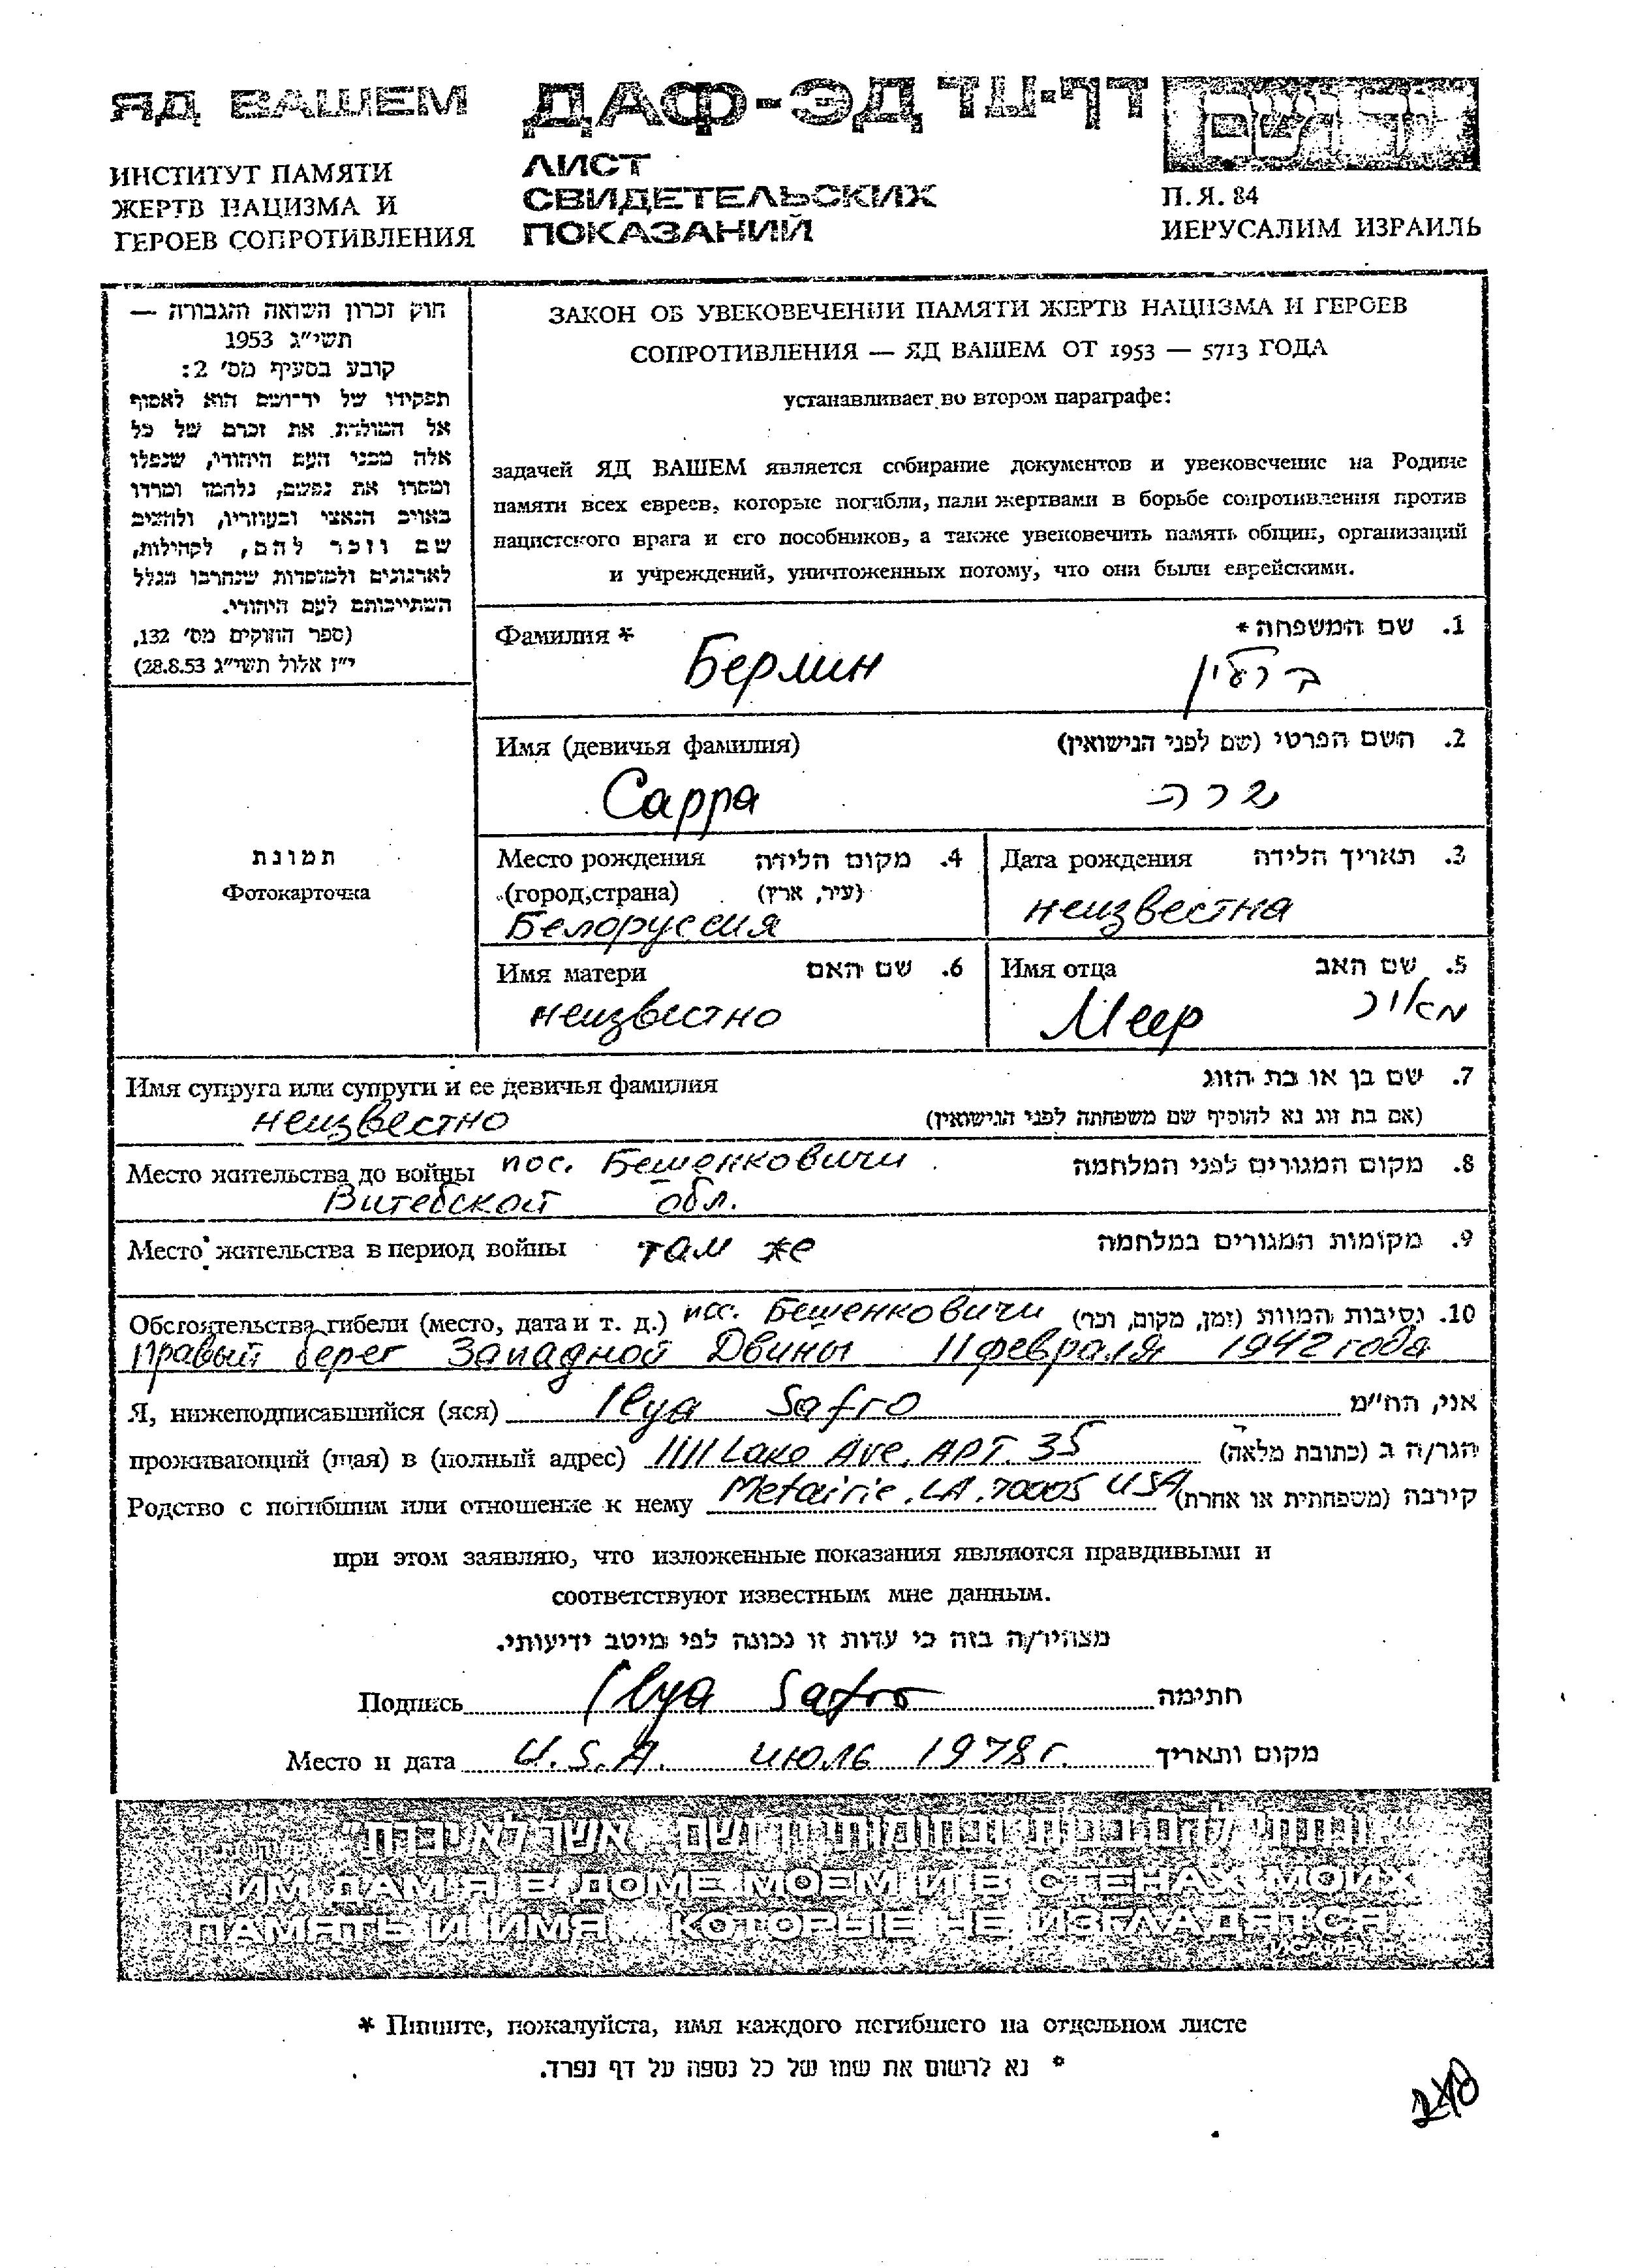 ЯД ВАШЕМ
ИНСТИТУТ ПАМЯТИ
ЖЕРТВ НАЦИЗМА И
ГЕРОЕВ СОПРОТИВЛЕНИЯ
ДАФ-ЭД דף-עד
ЛИСТ
СВИДЕТЕЛЬСКИХ
ПОКАЗАНИЙ
יד ושם
П.Я. 84
ИЕРУСАЛИМ ИЗРАИЛЬ
חוק זכרון השואה והגבורה —
תשי"ג 1953
קובע בסעיף מס' 2:
תפקידו של יד-ושם הוא לאסוף
אל המולדת את זכרם של כל
אלה מבני העם היהודי, שנפלו
ומסרו את נפשם, נלחמו ומרדו
באויב הנאצי ובעוזריו, ולהציב
שם וזכר להם, לקהילות,
לארגונים ולמוסדות שנחרבו בגלל
השתייכותם לעם היהודי.
(ספר החוקים מס' 132,
י"ז אלול תשי"ג 28.8.53)
ЗАКОН ОБ УВЕКОВЕЧЕНИИ ПАМЯТИ ЖЕРТВ НАЦИЗМА И ГЕРОЕВ
СОПРОТИВЛЕНИЯ — ЯД ВАШЕМ ОТ 1953 — 5713 ГОДА
устанавливает во втором параграфе:
задачей ЯД ВАШЕМ является собирание документов и увековечение на Родине
памяти всех евреев, которые погибли, пали жертвами в борьбе сопротивления против
нацистского врага и его пособников, а также увековечить память общин, организаций
и учреждений, уничтоженных потому, что они были еврейскими.
Фамилия * 1. שם המשפחה *
Берлин ברלין
Имя (девичья фамилия) 2. השם הפרטי (שם לפני הנישואין)
Сарра שרה
תמונת
Фотокарточка
Место рождения 4. מקום הלידה
(город,страна) (עיר, ארץ)
Белоруссия
Дата рождения 3. תאריך הלידה
неизвестна
Имя матери 6. שם האם
неизвестно
Имя отца 5. שם האב
Меер מאיר
Имя супруга или супруги и ее девичья фамилия 7. שם בן או בת הזוג
неизвестно (אם בת זוג נא להוסיף שם משפחתה לפני הנישואין)
Место жительства до войны пос. Бешенковичи 8. מקום המגורים לפני המלחמה
Витебской обл.
Место жительства в период войны там же 9. מקומות המגורים במלחמה
Обстоятельства гибели (место, дата и т. д.) пос. Бешенковичи 10. נסיבות המוות (זמן, מקום, וכו')
правый берег Западной Двины 11 февраля 1942 года
Я, нижеподписавшийся (яся) Ilya Safro אני, הח"מ
проживающий (щая) в (полный адрес) 1111 Lake Ave, APT. 35 הגר/ה ב (כתובת מלאה)
Родство с погибшим или отношение к нему Metairie, LA, 70005 USA קירבה (משפחתית או אחרת)
при этом заявляю, что изложенные показания являются правдивыми и
соответствуют известным мне данным.
מצהיר/ה בזה כי עדות זו נכונה לפי מיטב ידיעותי.
Подпись Ilya Safro חתימה
Место и дата U.S.A. июль 1978 г. מקום ותאריך
"ונתתי להם בביתי ובחומותי יד ושם... אשר לא יכרת"
ИМ ДАМ Я В ДОМЕ МОЕМ И В СТЕНАХ МОИХ
ПАМЯТЬ И ИМЯ... КОТОРЫЕ НЕ ИЗГЛАДЯТСЯ.
* Пишите, пожалуйста, имя каждого погибшего на отдельном листе
* נא לרשום את שמו של כל נספה על דף נפרד.